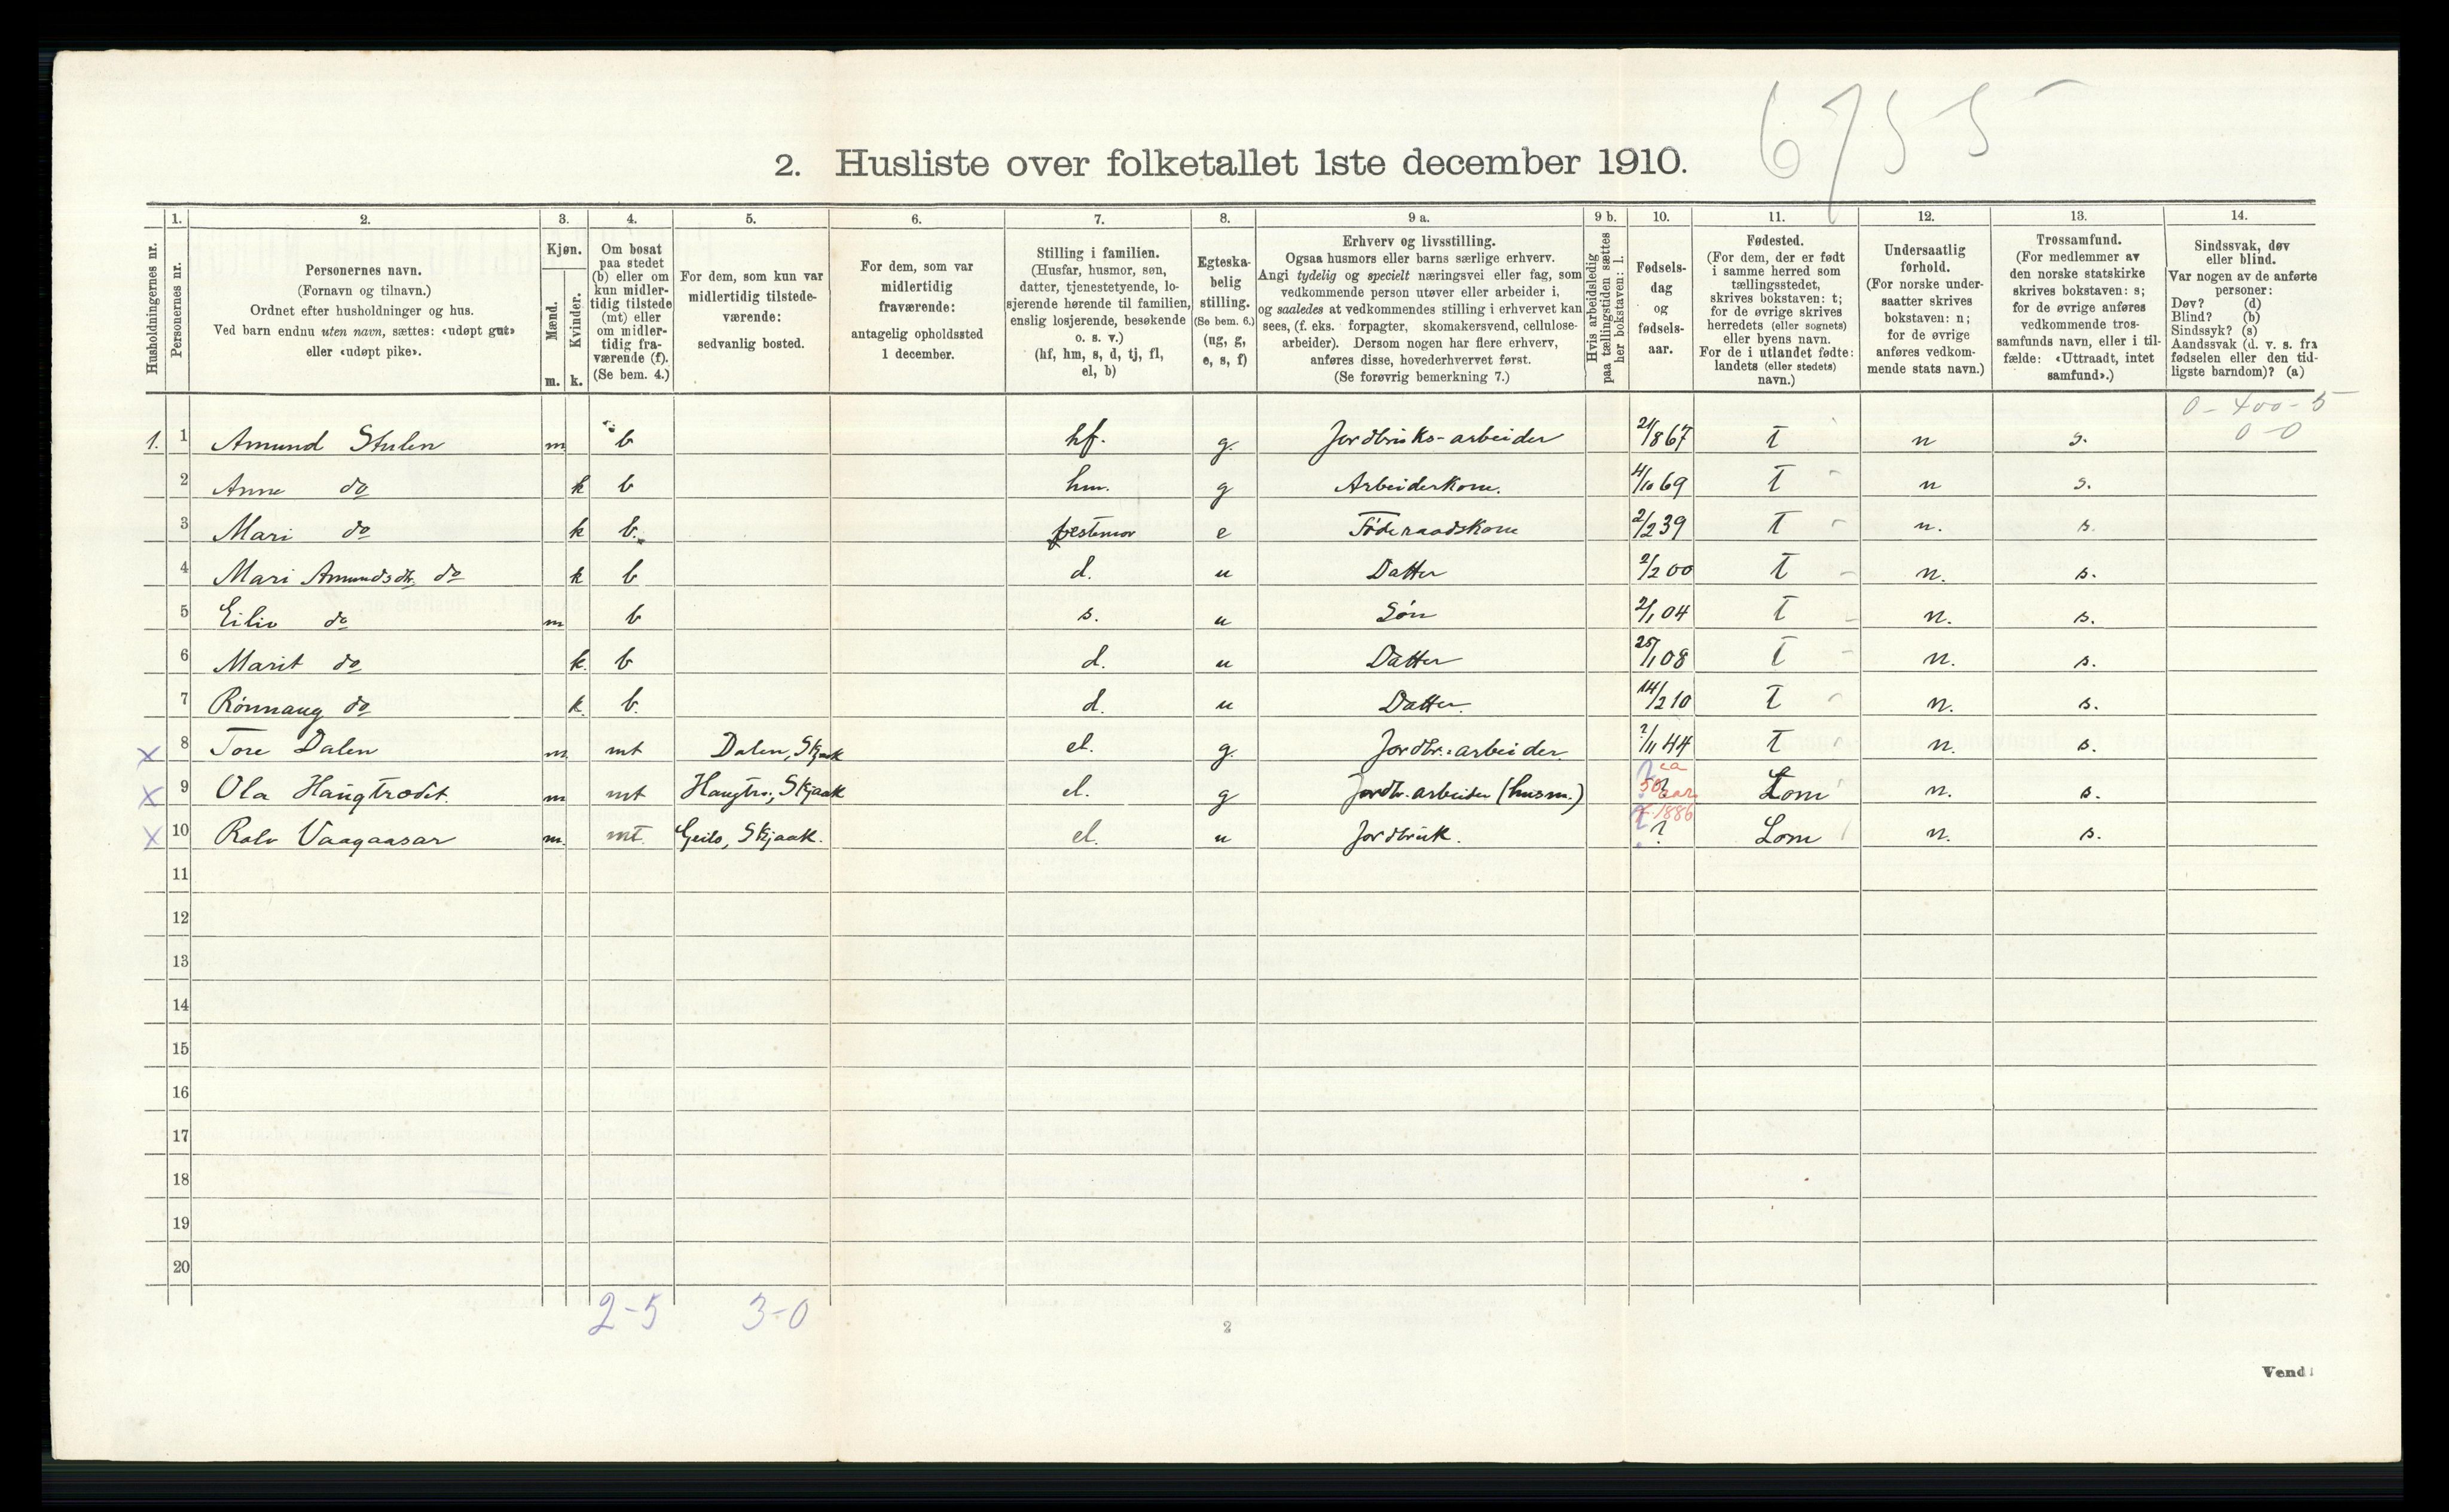 6755
2. Husliste over folketallet 1ste december 1910.
Husholdningernes nr.
1. Personernes nr.
2. Personernes navn. (Fornavn og tilnavn.) Ordnet efter husholdninger og hus. Ved barn endnu uten navn, sættes: «udøpt gut» eller «udøpt pike».
3. Kjøn. Mænd. m. Kvinder. k.
4. Om bosat paa stedet (b) eller om kun midlertidig tilstede (mt) eller om midlertidig fraværende (f). (Se bem. 4.)
5. For dem, som kun var midlertidig tilstedeværende: sedvanlig bosted.
6. For dem, som var midlertidig fraværende: antagelig opholdssted 1 december.
7. Stilling i familien. (Husfar, husmor, søn, datter, tjenestetyende, losjerende hørende til familien, enslig losjerende, besøkende o. s. v.) (hf, hm, s, d, tj, fl, el, b)
8. Egteskabelig stilling. (Se bem. 6.) (ug, g, e, s, f)
9 a. Erhverv og livsstilling. Ogsaa husmors eller barns særlige erhverv. Angi tydelig og specielt næringsvei eller fag, som vedkommende person utøver eller arbeider i, og saaledes at vedkommendes stilling i erhvervet kan sees, (f. eks. forpagter, skomakersvend, cellulosearbeider). Dersom nogen har flere erhverv, anføres disse, hovederhvervet først. (Se forøvrig bemerkning 7.)
9 b. Hvis arbeidsledig paa tællingstiden sættes her bokstaven: l.
10. Fødselsdag og fødselsaar.
11. Fødested. (For dem, der er født i samme herred som tællingsstedet, skrives bokstaven: t; for de øvrige skrives herredets (eller sognets) eller byens navn. For de i utlandet fødte: landets (eller stedets) navn.)
12. Undersaatlig forhold. (For norske undersaatter skrives bokstaven: n; for de øvrige anføres vedkommende stats navn.)
13. Trossamfund. (For medlemmer av den norske statskirke skrives bokstaven: s; for de øvrige anføres vedkommende trossamfunds navn, eller i tilfælde: «Uttraadt, intet samfund».)
14. Sindssvak, døv eller blind. Var nogen av de anførte personer: Døv? (d) Blind? (b) Sindssyk? (s) Aandssvak (d. v. s. fra fødselen eller den tidligste barndom)? (a)
0-400-5
0-0
1. 1 Amund Stulen m b hf. g. Jordbruks-arbeider 21/8 67 t n s.
2 Anne do k b hm. g Arbeiderkone. 4/10 69 t n s.
3 Mari do k b. festemor e Föderaadskone 2/2 39 t n. s.
4 Mari Amundsdtr. do k b d. u Datter 2/2 00 t n. s.
5 Eiliv do m b s. u Søn 2/1 04 t n. s.
6 Marit do k. b d. u Datter 25/1 08 t n. s.
7 Rönnaug do k. b. d. u Datter. 14/2 10 t n. s.
X 8 Tore Dalen m mt Dalen, Skjaak el. g. Jordbr.-arbeider. ?/11 44 t n. s.
X 9 Ola Haugtrædet. m mt Haugtr., Skjaak el. g Jordbr. arbeider (husm.) ? ca 50 aar Lom n. s.
X 10 Rolv Vaagaasar m. mt. Geilo, Skjaak. el. u Jordbruk. ? 1886 Lom n. s.
11
12
13
14
15
16
17
18
19
20
2-5 3-0
2
Vend!